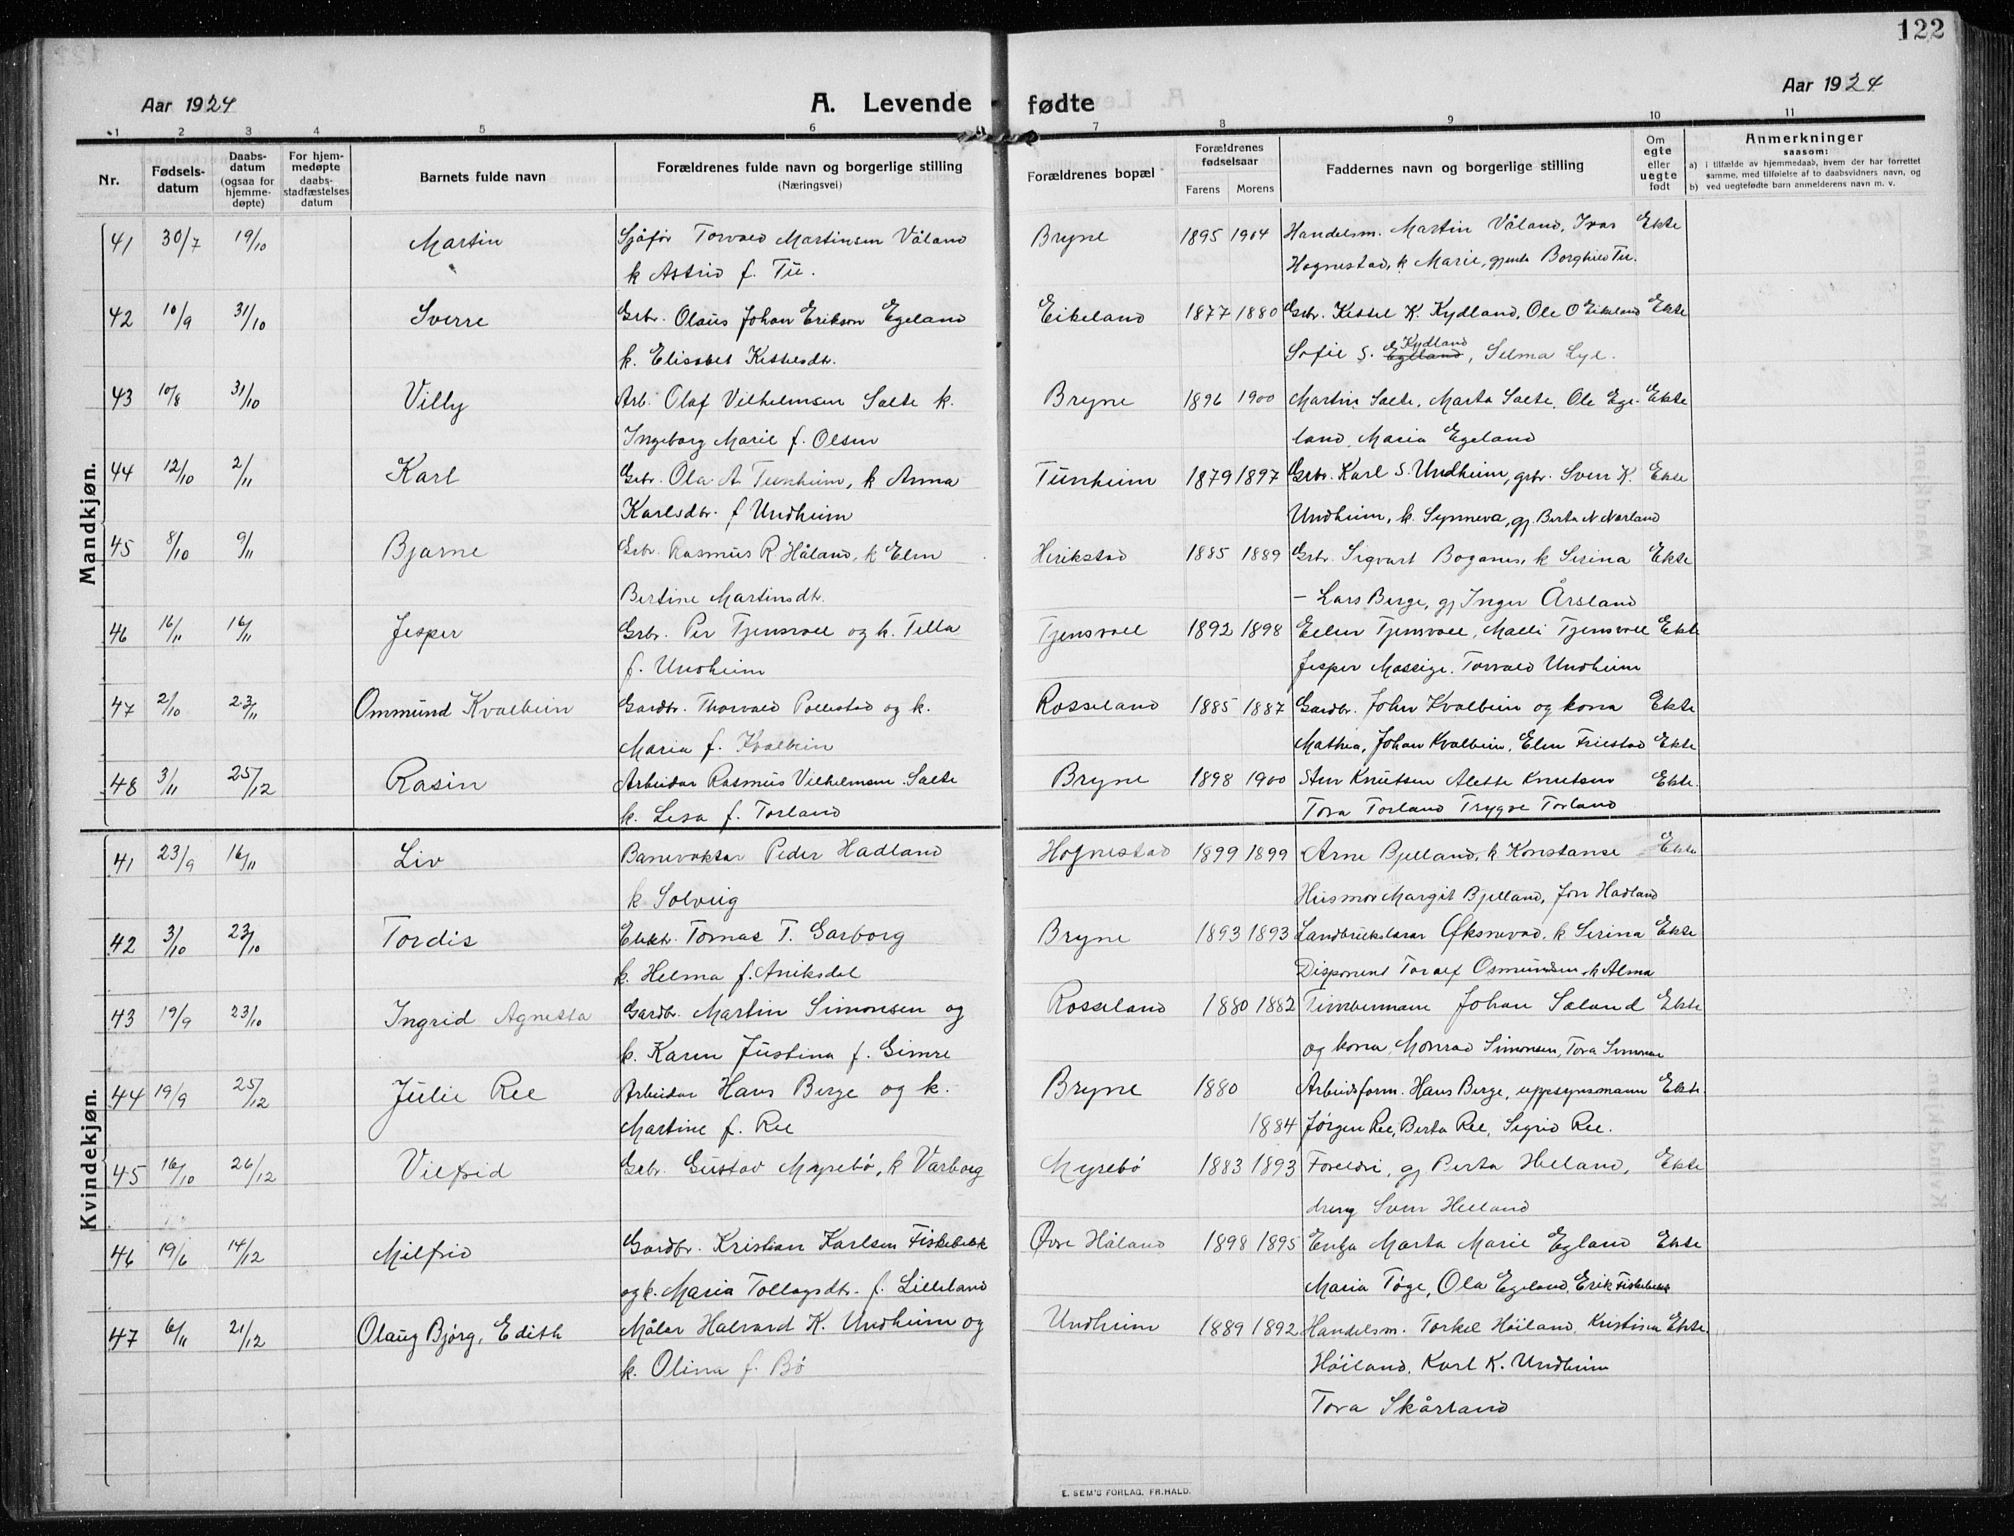 122
Aar 1924
A. Levende fødte
Aar 1924
1 2 3 4 5 6 7 8 9 10 11
Nr. Fødsels-datum Daabs-datum (ogsaa for hjemme-døpte) For hjem-medøpte daabs-stadfæstelses datum Barnets fulde navn Forældrenes fulde navn og borgerlige stilling (Næringsvei) Forældrenes bopæl Forældrenes fødselsaar Farens Morens Faddernes navn og borgerlige stilling Om egte eller uegte født Anmerkninger saasom:
a) i tilfælde av hjemmedaab, hvem der har forrettet samme, med tilføielse af to daabsvidners navn, og
b) ved uegtefødte barn anmelderens navn m. v.
Mandkjøn.
41 30/7 19/10 Martin Sjåfør Torvald Martinsen Våland Bryne 1895 1904 Handelsm. Martin Våland, Ivar Ekte
k Astrid f. Tu. Hognestad, k Marie, gjenta Borghild Tu.
42 10/9 31/10 Sverre Grbr. Olaus Johan Erikson Egeland Eikeland 1877 1880 Grbr. Kittel K. Kydland, Ole O Eikeland Ekte
k. Elisabet Kittelsdtr. Sofie S. Egeland Kydland, Selma Lye.
43 10/8 31/10 Villy Arb. Olaf Vilhelmsen Salte k. Bryne 1896 1900 Martin Salte, Marta Salte, Ole Ege- Ekte
Ingeborg Marie f. Olsen land, Maria Egeland
44 12/10 2/11 Karl Grbr. Ola A. Tunheim, k Anna Tunheim 1879 1897 Grbr. Karl S. Undheim, grbr. Sven K. Ekte
Karlsdtr. f Undheim Undheim, k. Synneva, gj Berta N Nærland
45 8/10 9/11 Bjarne Grbr. Rasmus R Håland, k Elen Herikstad 1885 1889 Grbr. Sigvart Boganes, k Serina Ekte
Bertine Martinsdtr. – Lars Berge, gj Inger Årsland
46 16/11 16/11 Jesper Grbr. Per Tjensvoll og k. Tilla Tjensvoll 1892 1898 Ellen Tjensvoll, Malli Tjensvoll Ekte
f. Undheim Jesper Massige, Torvald Undheim
47 2/10 23/11 Ommund Kvalbein Gardbr. Thorvald Pollestad og k. Rosseland 1885 1887 Gardbr. John Kvalbein og kona Ekte
Maria f. Kvalbein Mathea, Johan Kvalbein, Elen Friestad Ekte
48 3/11 25/12 Rasin Arbeidar Rasmus Vilhelmsen Salte Bryne 1898 1900 Knutsen Alette Knutsen Ekte.
k. Lisa f. Torland Tora Torland Trygve Torland
Kvindekjøn.
41 23/9 16/11 Liv Banevaktar Peder Hadland Hognestad 1899 1899 Arne Bjelland, k Konstanse Ekte
k Solveig Husmor Margit Bjelland, Jon Hadland
42 3/10 23/10 Tordis Elektr. Tomas T. Garborg Bryne 1893 1893 Landbrukslærar Øksnevad, k Serina Ekte
k. Helma f. Aniksdal Disponent Toralf Osmundsen, k Alma
43 19/9 23/10 Ingrid Agnetta Gardbr. Martin Simonsen og Rosseland 1880 1882 Timbermann Johan Sæland Ekte
k. Karen Justina f. Gimre og kona, Monrad Simonsen, Tora Simonsen
44 19/9 25/12 Julie Ree Arbeidar Hans Berge og k. Bryne 1880 Arbeidsform. Hans Berge, uppsynsmann Ekte.
Martine f. Ree 1884 Jørgen Ree, Berta Ree, Sigrid Ree.
45 16/10 26/12 Vilfrid Grbr. Gustav Myrebø, k Varborg Myrebø 1883 1893 Foreldri, gj Berta Helland, Ekte
dreng Sven Helland
46 19/6 14/12 Milfrid Gardbr. Kristian Karlsen Fiskebekk Øvre Håland 1898 1895 Enkja Marta Marie Egland Ekte
og k. Maria Tollagsdtr. f. Lilleland Maria Tøge, Ola Egeland, Erik Fiskebekk
47 6/11 21/12 Olaug Bjørg, Edith Målar Halvard K. Undheim og Undheim 1889 1892 Handelsm. Torkel Høiland, Kristina Ekte
k. Olina f. Bø Høiland, Karl K. Undheim
Tora Skårland
E. SEM'S FORLAG, FR.HALD.